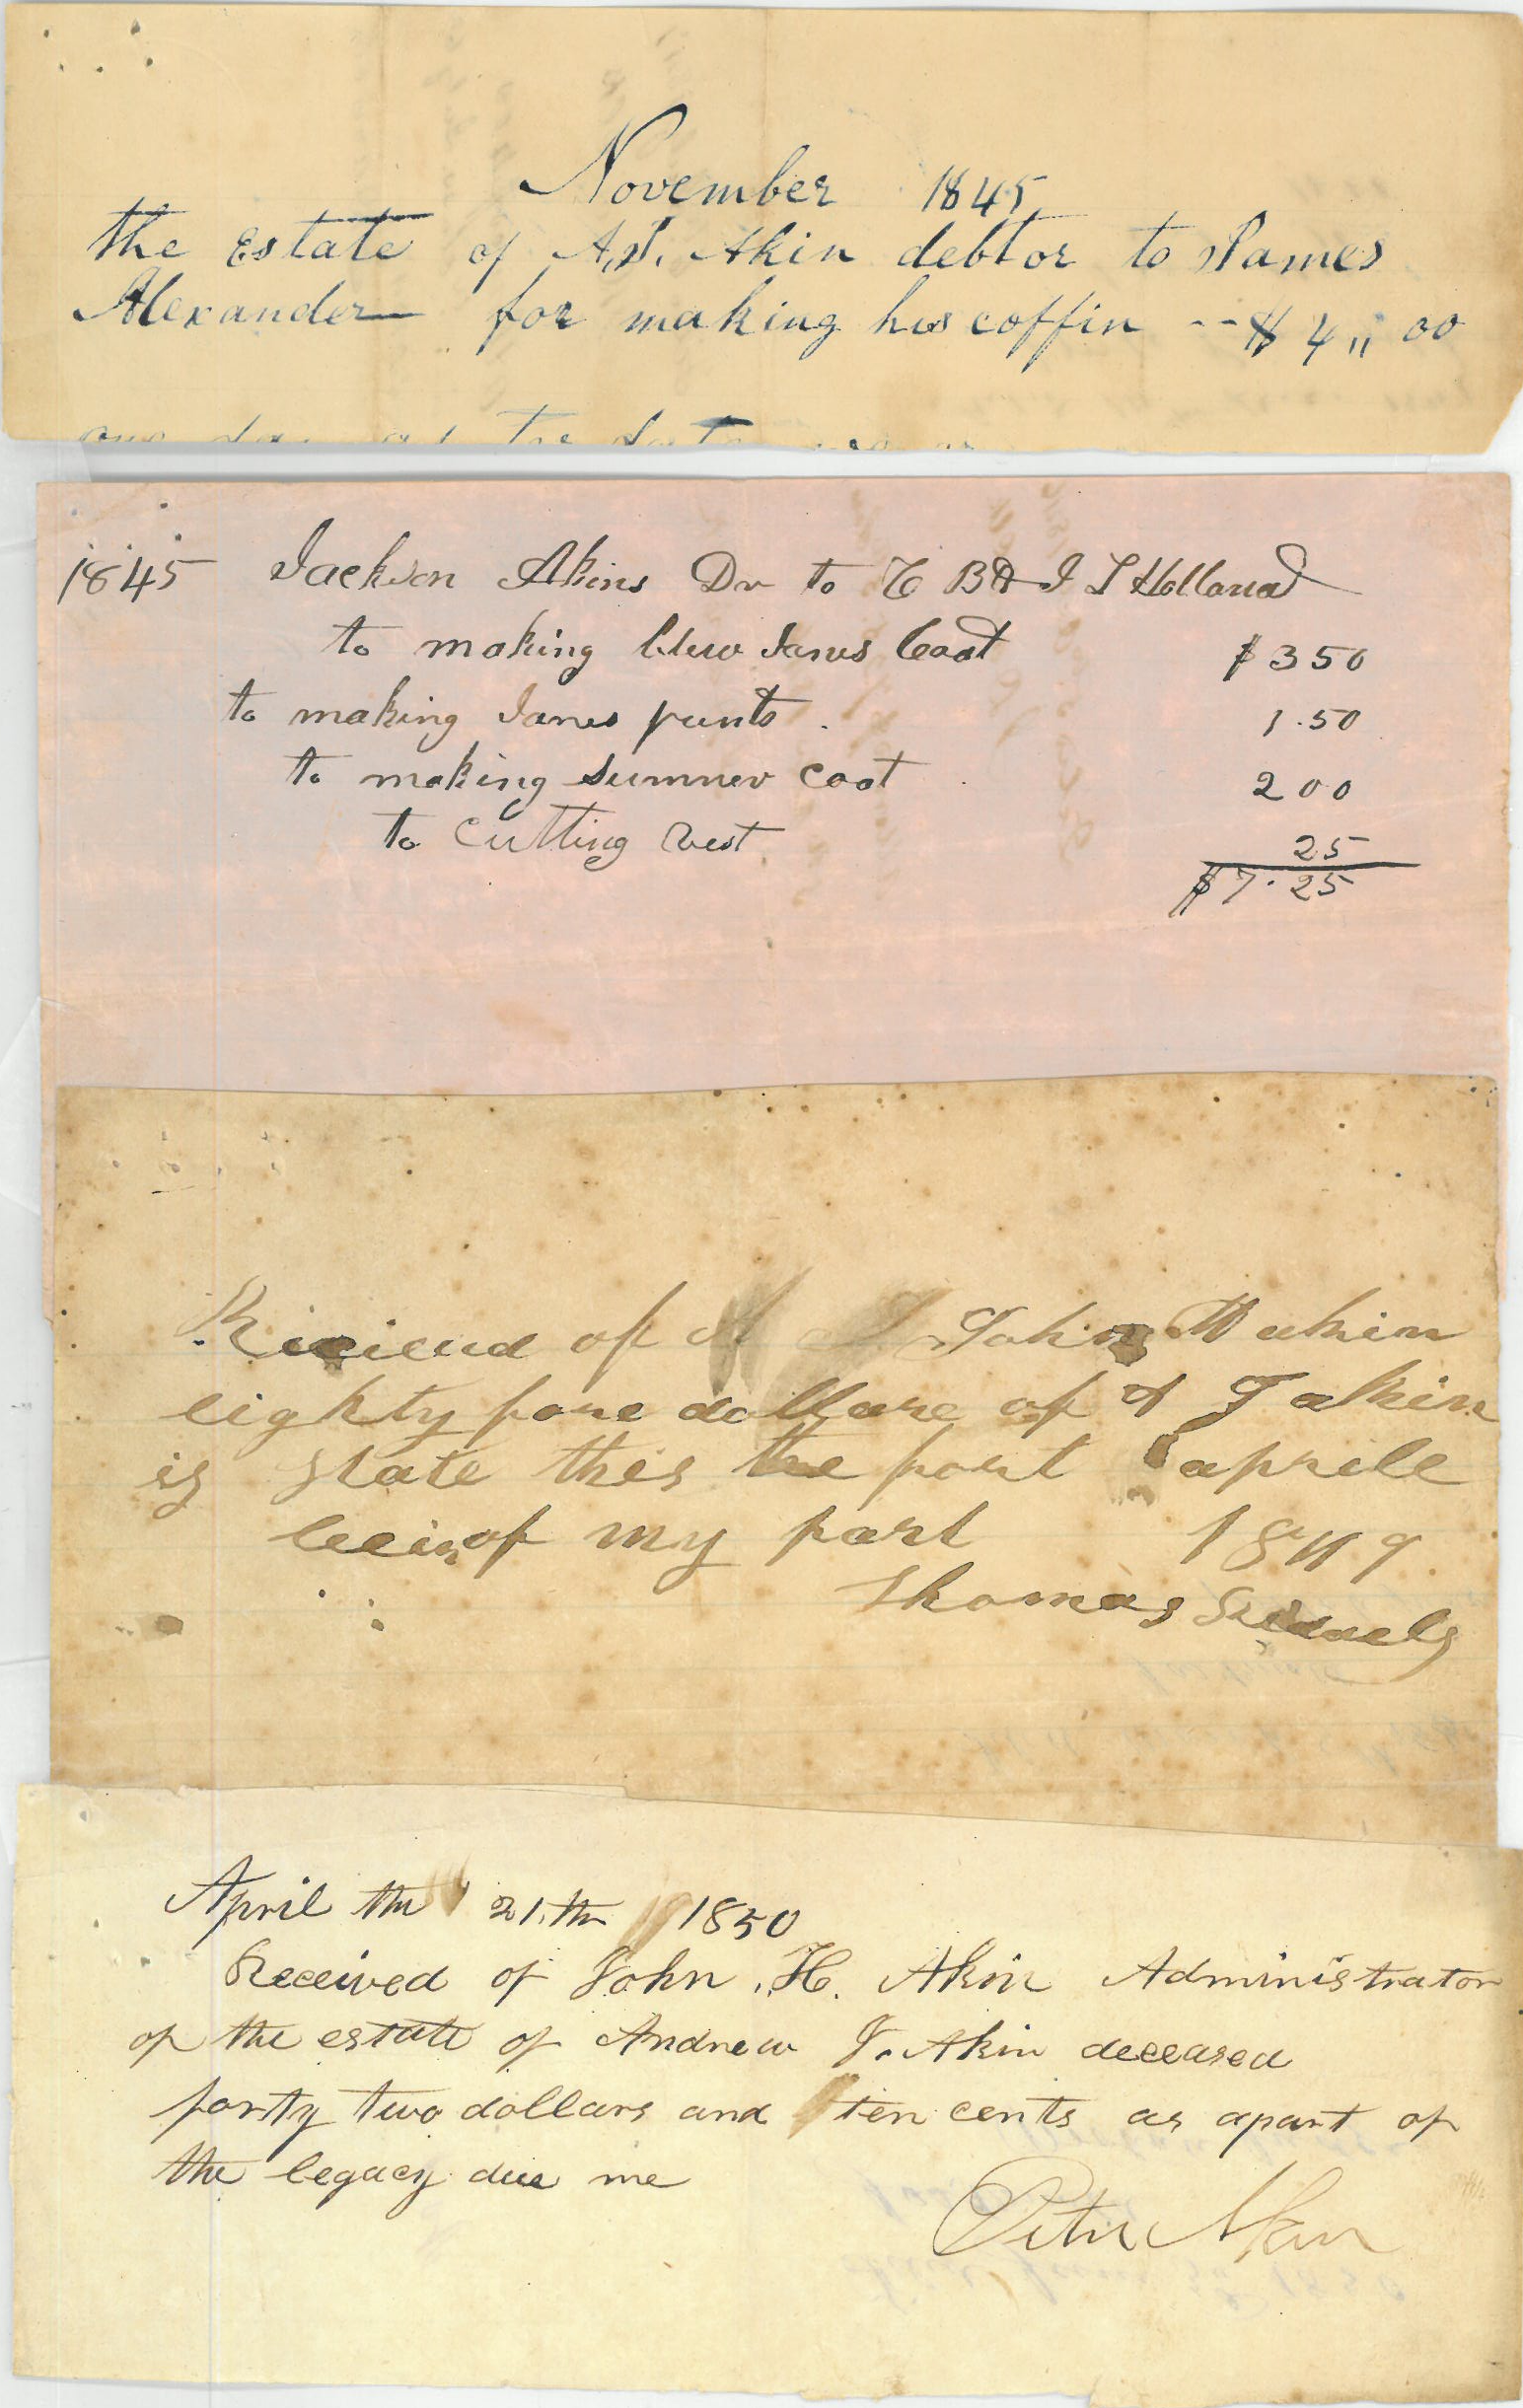 November 1845
the Estate of A. J. Akin debtor to James
Alexander for making his coffin -- $ 4 ,, 00
1845 Jackson Akins Dr to C B & J L Holland
to making blew Janes Coat $ 3 50
to making Janes pants . 1.50
to making summer coat 2 00
to cutting vest 25
$ 7.25
of John H akin
eighty fore dollare of A J akin
is state this the furst aprile
beein of my part 1849
Thomas
April the 21.th 1850
Received of John H. Akin Administrator
of the estate of Andrew J. Akin deceased
forty two dollars and ten cents as apart of
the legacy due me
Peter Akin